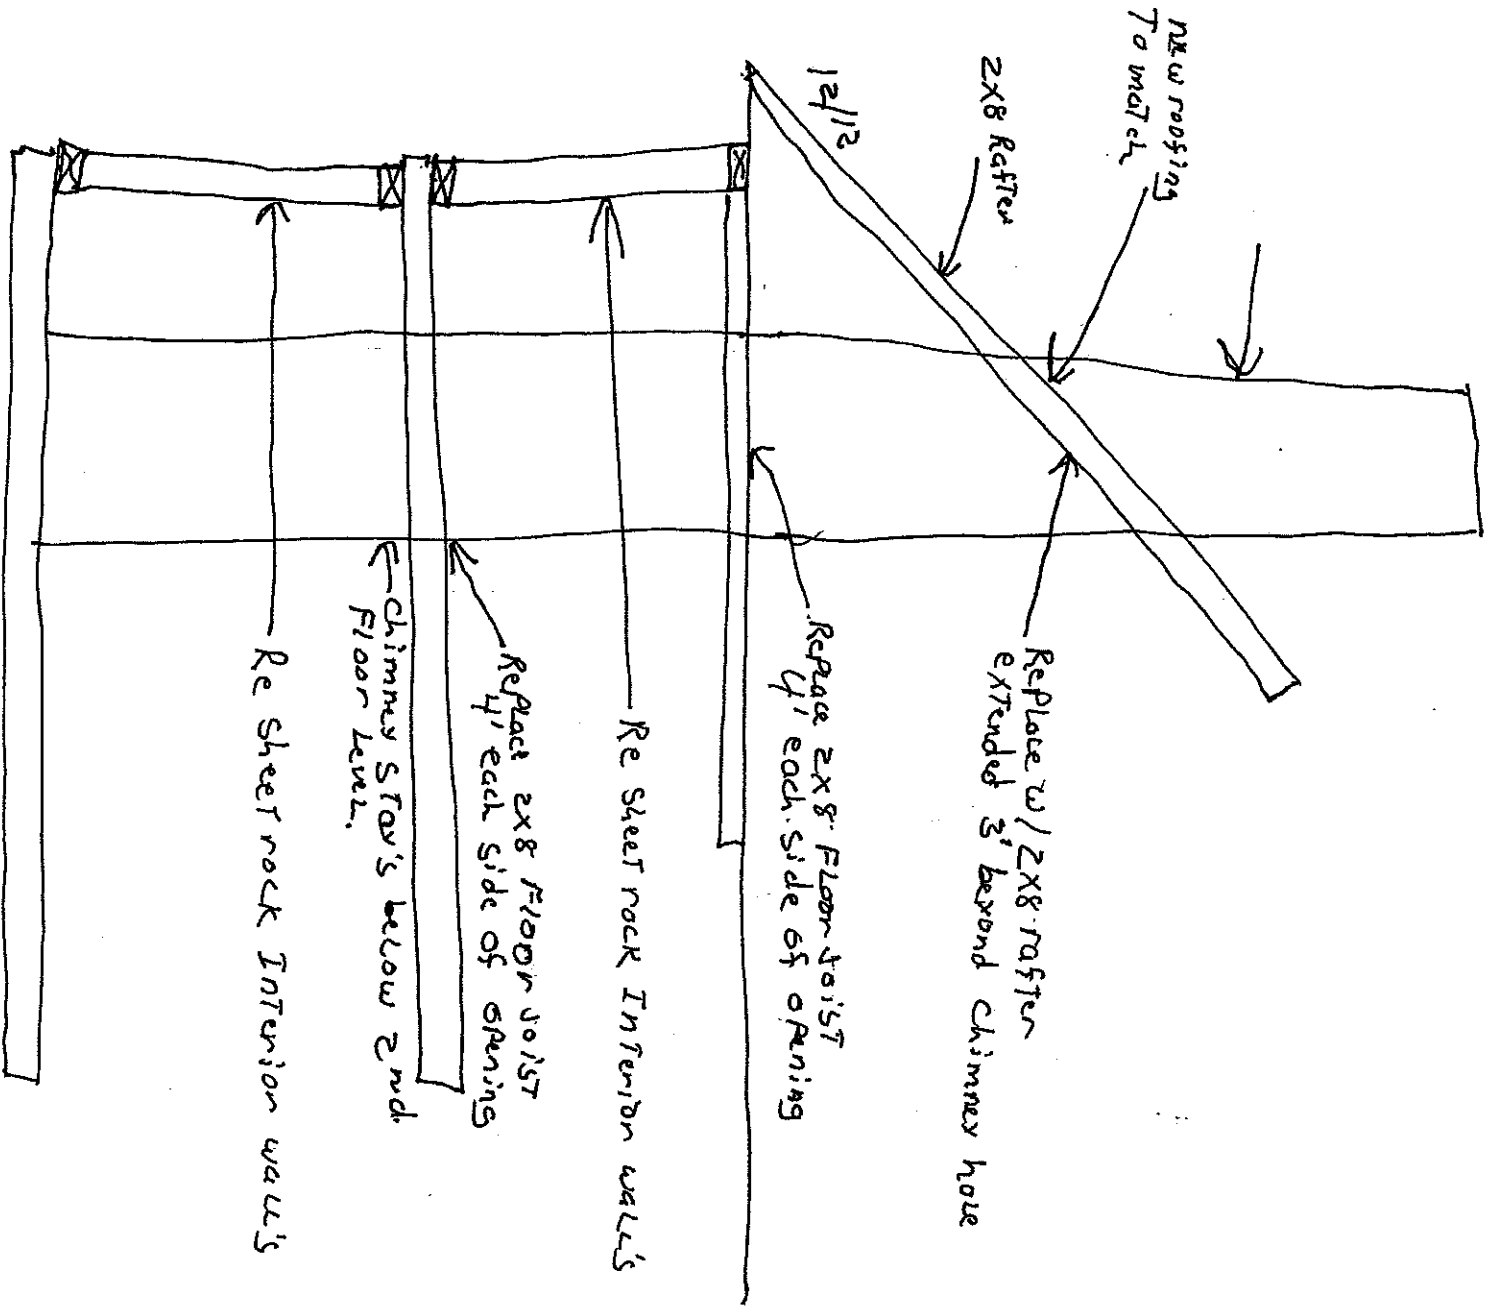 new roofing
To match
2x8 Rafter
12/12
Replace w/ 2x8 rafter
extended 3' beyond chimney hole
Replace 2x8 Floor Joist
4' each side of opening
Re Sheet rock Interior wall's
Replace 2x8 Floor Joist
4' each side of opening
Chimney Stay's below 2nd.
Floor Level.
Re Sheet rock Interior wall's